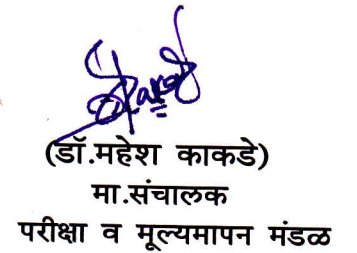 (डॉ.महेश काकडे)
मा.संचालक
परीक्षा व मूल्यमापन मंडळ